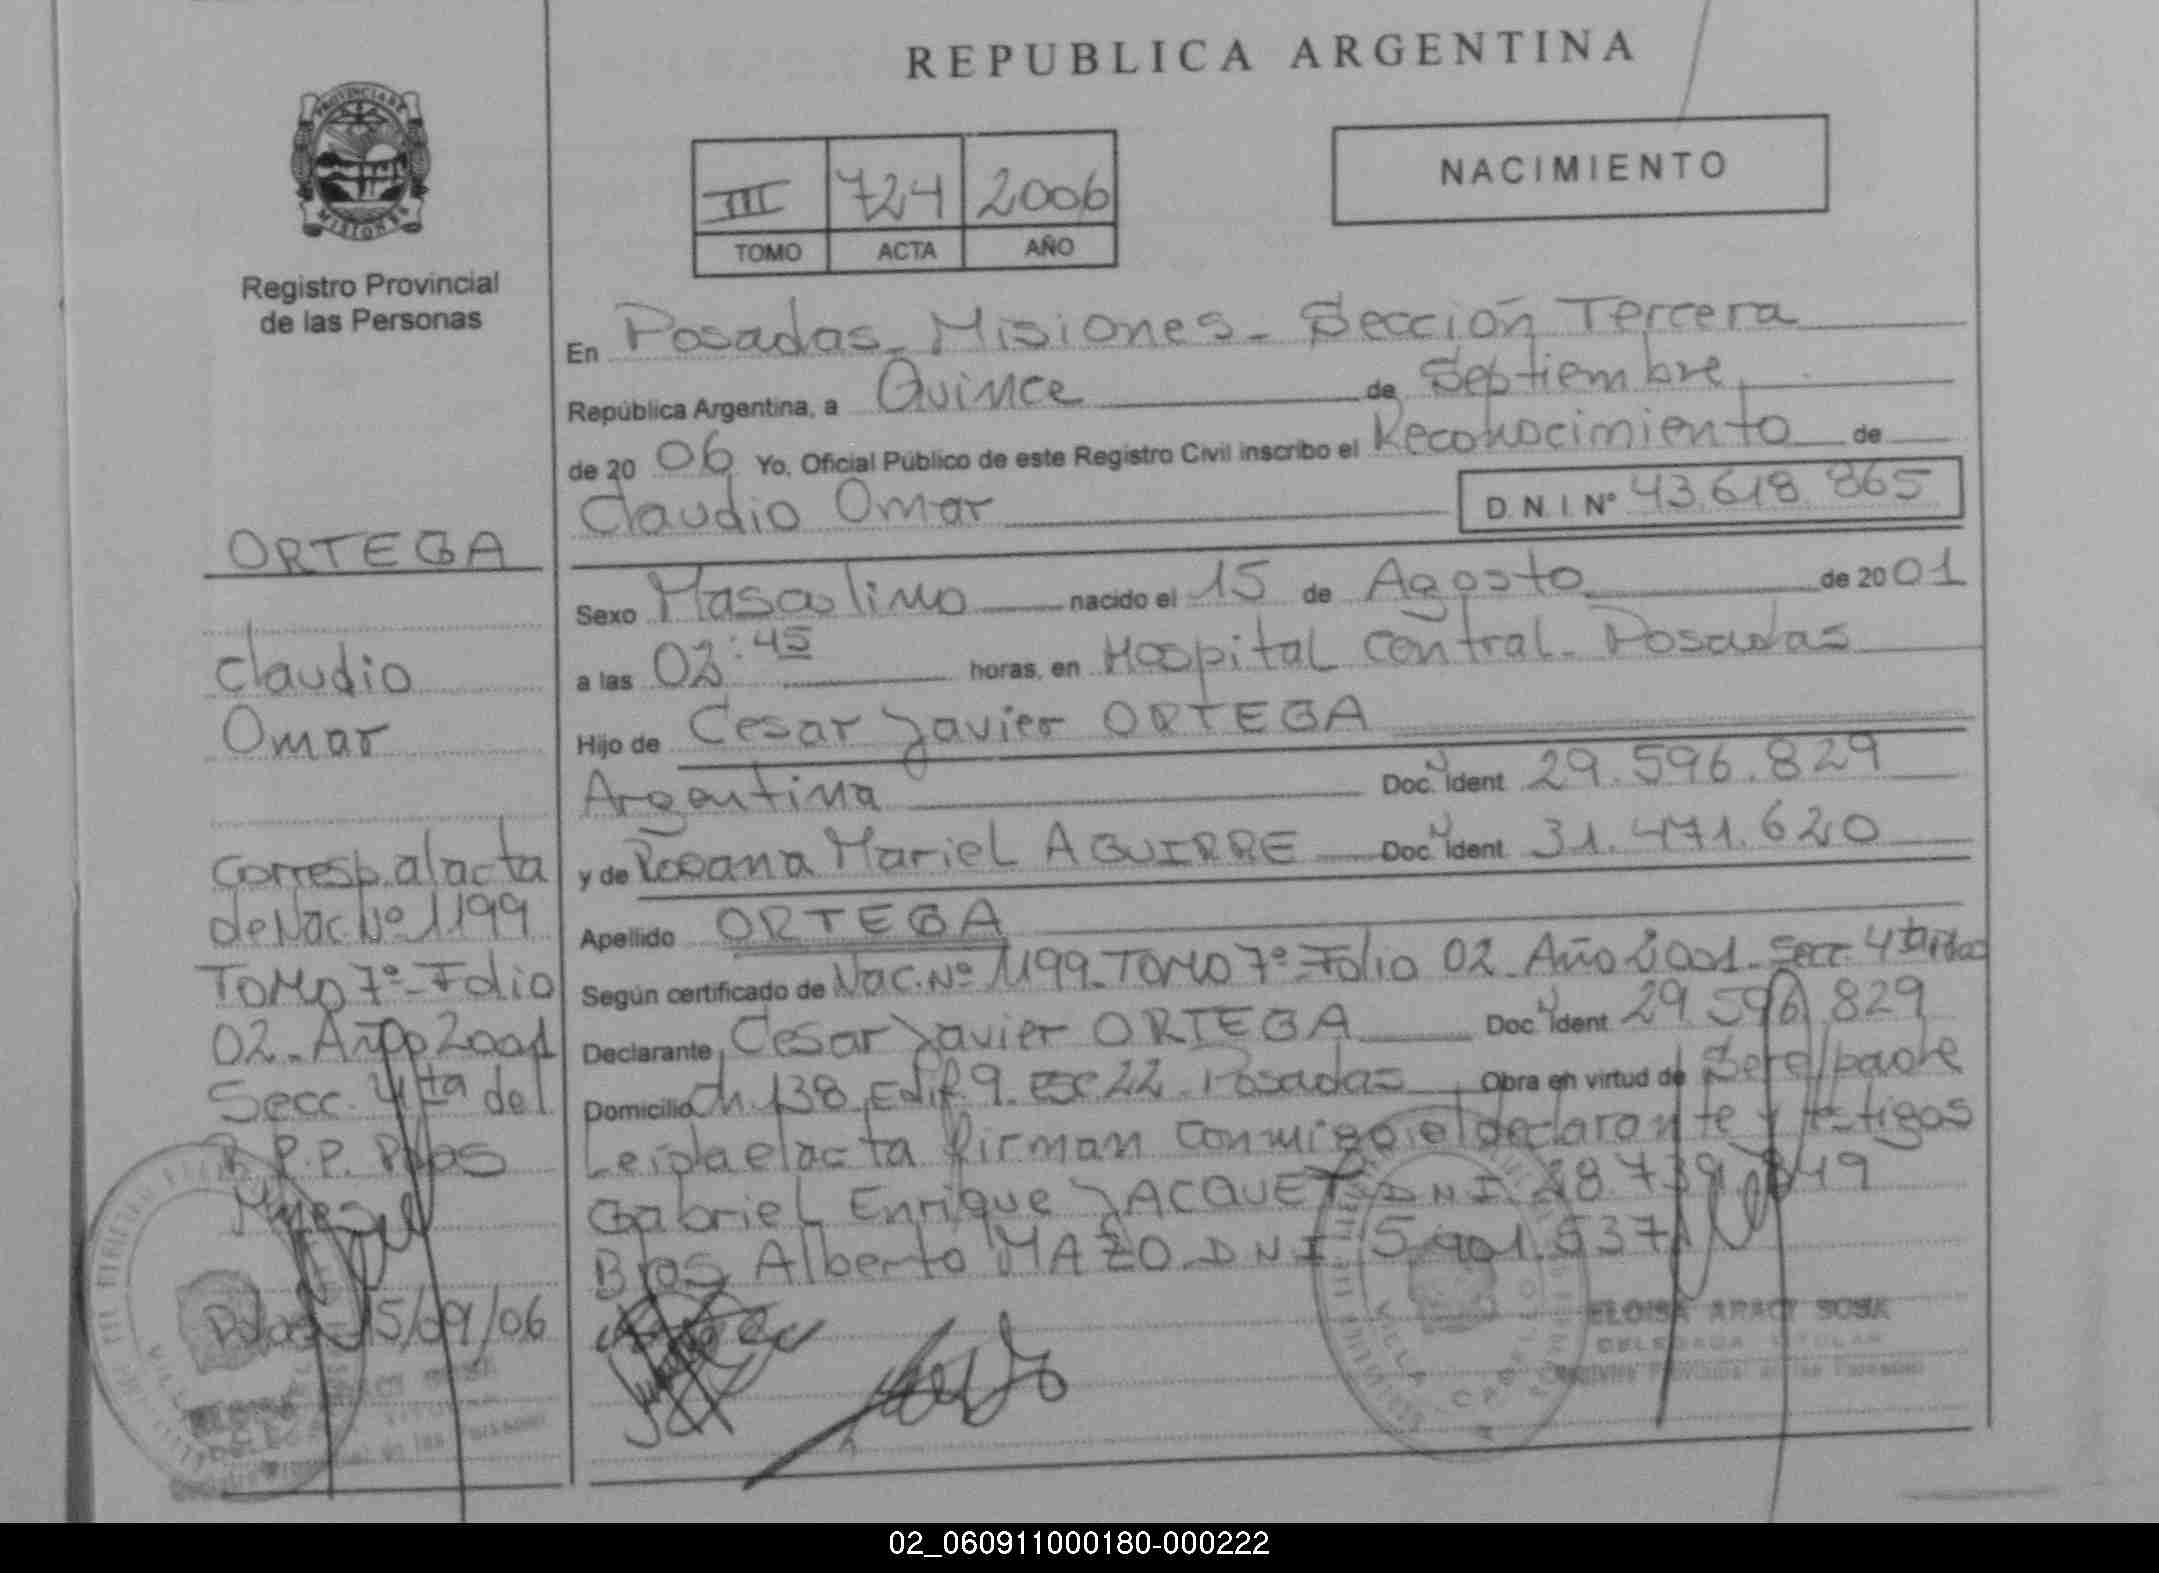 REPUBLICA ARGENTINA
PROVINCIA DE
MISIONES
Registro Provincial
de las Personas
III 724 2006
TOMO ACTA AÑO
NACIMIENTO
En Posadas - Misiones - Sección Tercera
República Argentina, a Quince de Septiembre
de 20 06 Yo, Oficial Público de este Registro Civil inscribo el Reconocimiento de
Claudio Omar D.N.I. Nº 43.618.865
Sexo Masculino nacido el 15 de Agosto de 20 01
a las 02:45 horas, en Hospital Central - Posadas
Hijo de Cesar Javier ORTEGA
Argentina Doc. Ident 29.596.829
y de Rosana Mariel AGUIRRE Doc. Ident 31.471.620
Apellido ORTEGA
Según certificado de Nac. Nº 1199 - TOMO 7º - Folio 02 - Año 2001 - Secc. 4ta
Declarante Cesar Javier ORTEGA Doc. Ident 29.596.829
Domicilio Ch. 138 Edif. 9 - esc 22 - Posadas Obra en virtud de Ser el padre
Leida el acta firman conmigo el declarante y testigos
Gabriel Enrique JACQUET DNI 28.739.349
Blas Alberto MAZO - DNI 5.901.537
ELOISA ARACY SOSA
DELEGADA TITULAR
Registro Provincial de las Personas
VILLA CABELLO
ORTEGA
Claudio
Omar
Corresp. al acta
de Nac Nº 1199
TOMO 7º - Folio
02 - Año 2001
Secc. 4ta del
R.P.P. Pdas
Pdas 15/09/06
02_060911000180-000222